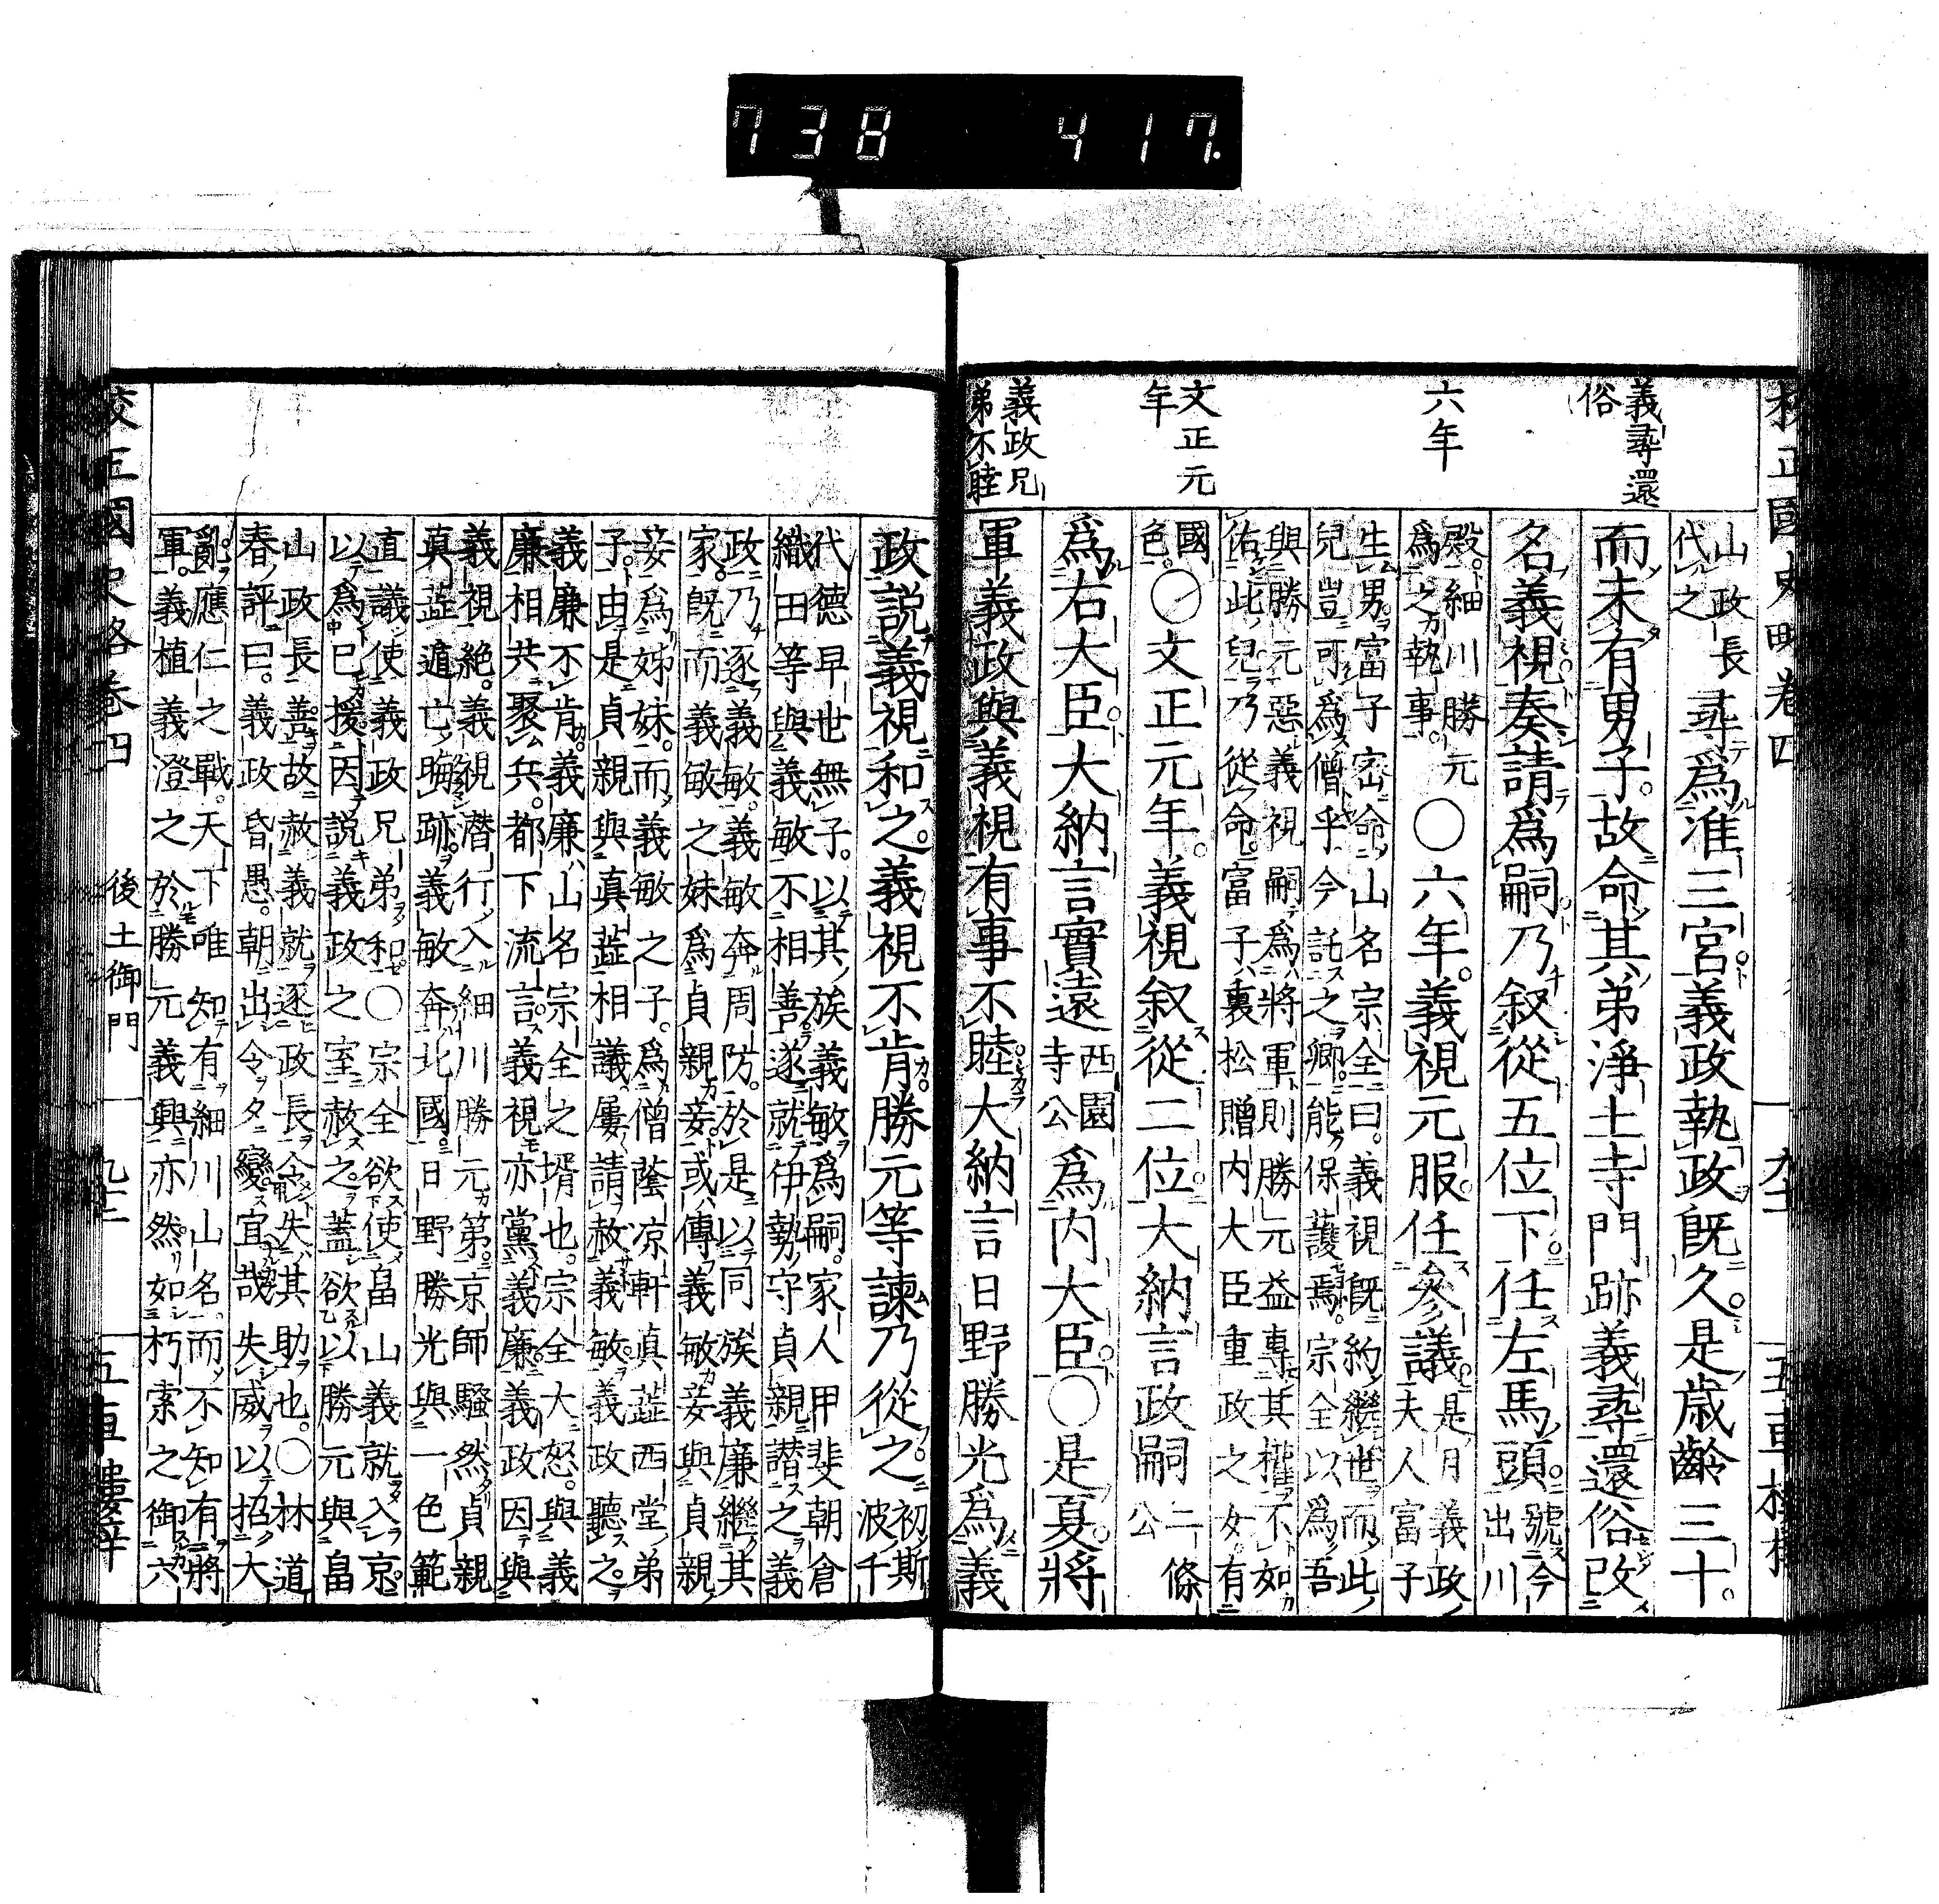 738 417.
校正國史略卷四
義尋還
俗
六年
文正元
年
義政兄
弟不睦
山政長
代之
尋爲准三宮義政執政既久是歳齡三十
而未有男子故命其弟淨土寺門跡義尋還俗改
名義視奏請爲嗣乃叙從五位下任左馬頭
號今
出川
殿細川勝元
爲之執事
〇六年義視元服任參議
是月義政
夫人富子
生男富子密命山名宗全曰義視既約繼世而此
兒豈可爲僧乎今託之卿能保護焉宗全以爲吾
與勝元惡義視嗣爲將軍則勝元益專其權不如
佑此兒乃從命富子裏松贈内大臣重政之女有
國
色
〇文正元年義視叙從二位大納言政嗣
二條
公
爲右大臣大納言實遠
西園
寺公
爲内大臣〇是夏將
軍義政與義視有事不睦大納言日野勝光爲義
政説義視和之義視不肯勝元等諫乃從之
初斯
波千
代德早世無子以其族義敏爲嗣家人甲斐朝倉
織田等與義敏不相善遂就伊勢守貞親譖之義
政乃逐義敏義敏奔周防於是以同族義廉繼其
家既而義敏之妹爲貞親妾或傳義敏妾與貞親
妾爲姊妹而義敏之子爲僧蔭凉軒真蕋西堂弟
子由是貞親與真蕋相議屢請赦義敏義政聽之
義廉不肯義廉山名宗全之壻也宗全大怒與義
廉相共聚兵都下流言義視亦黨義廉義政因與
義視絶義視潜行入細川勝元第京師騒然貞親
真蕋遁亡晦跡義敏奔北國日野勝光與一色範
直議使義政兄弟和〇宗全欲使畠山義就入京
以爲己援因説義政之室赦之蓋欲以勝元與畠
山政長善故赦義就逐政長令失其助也〇林道
春評曰義政昏愚朝出令夕變宜哉失威以招大
亂應仁之戰天下唯知有細川山名而不知有將
軍義植義澄之於勝元義興亦然如朽索之御六
校正國史略卷四
後土御門
九十二
五車樓梓